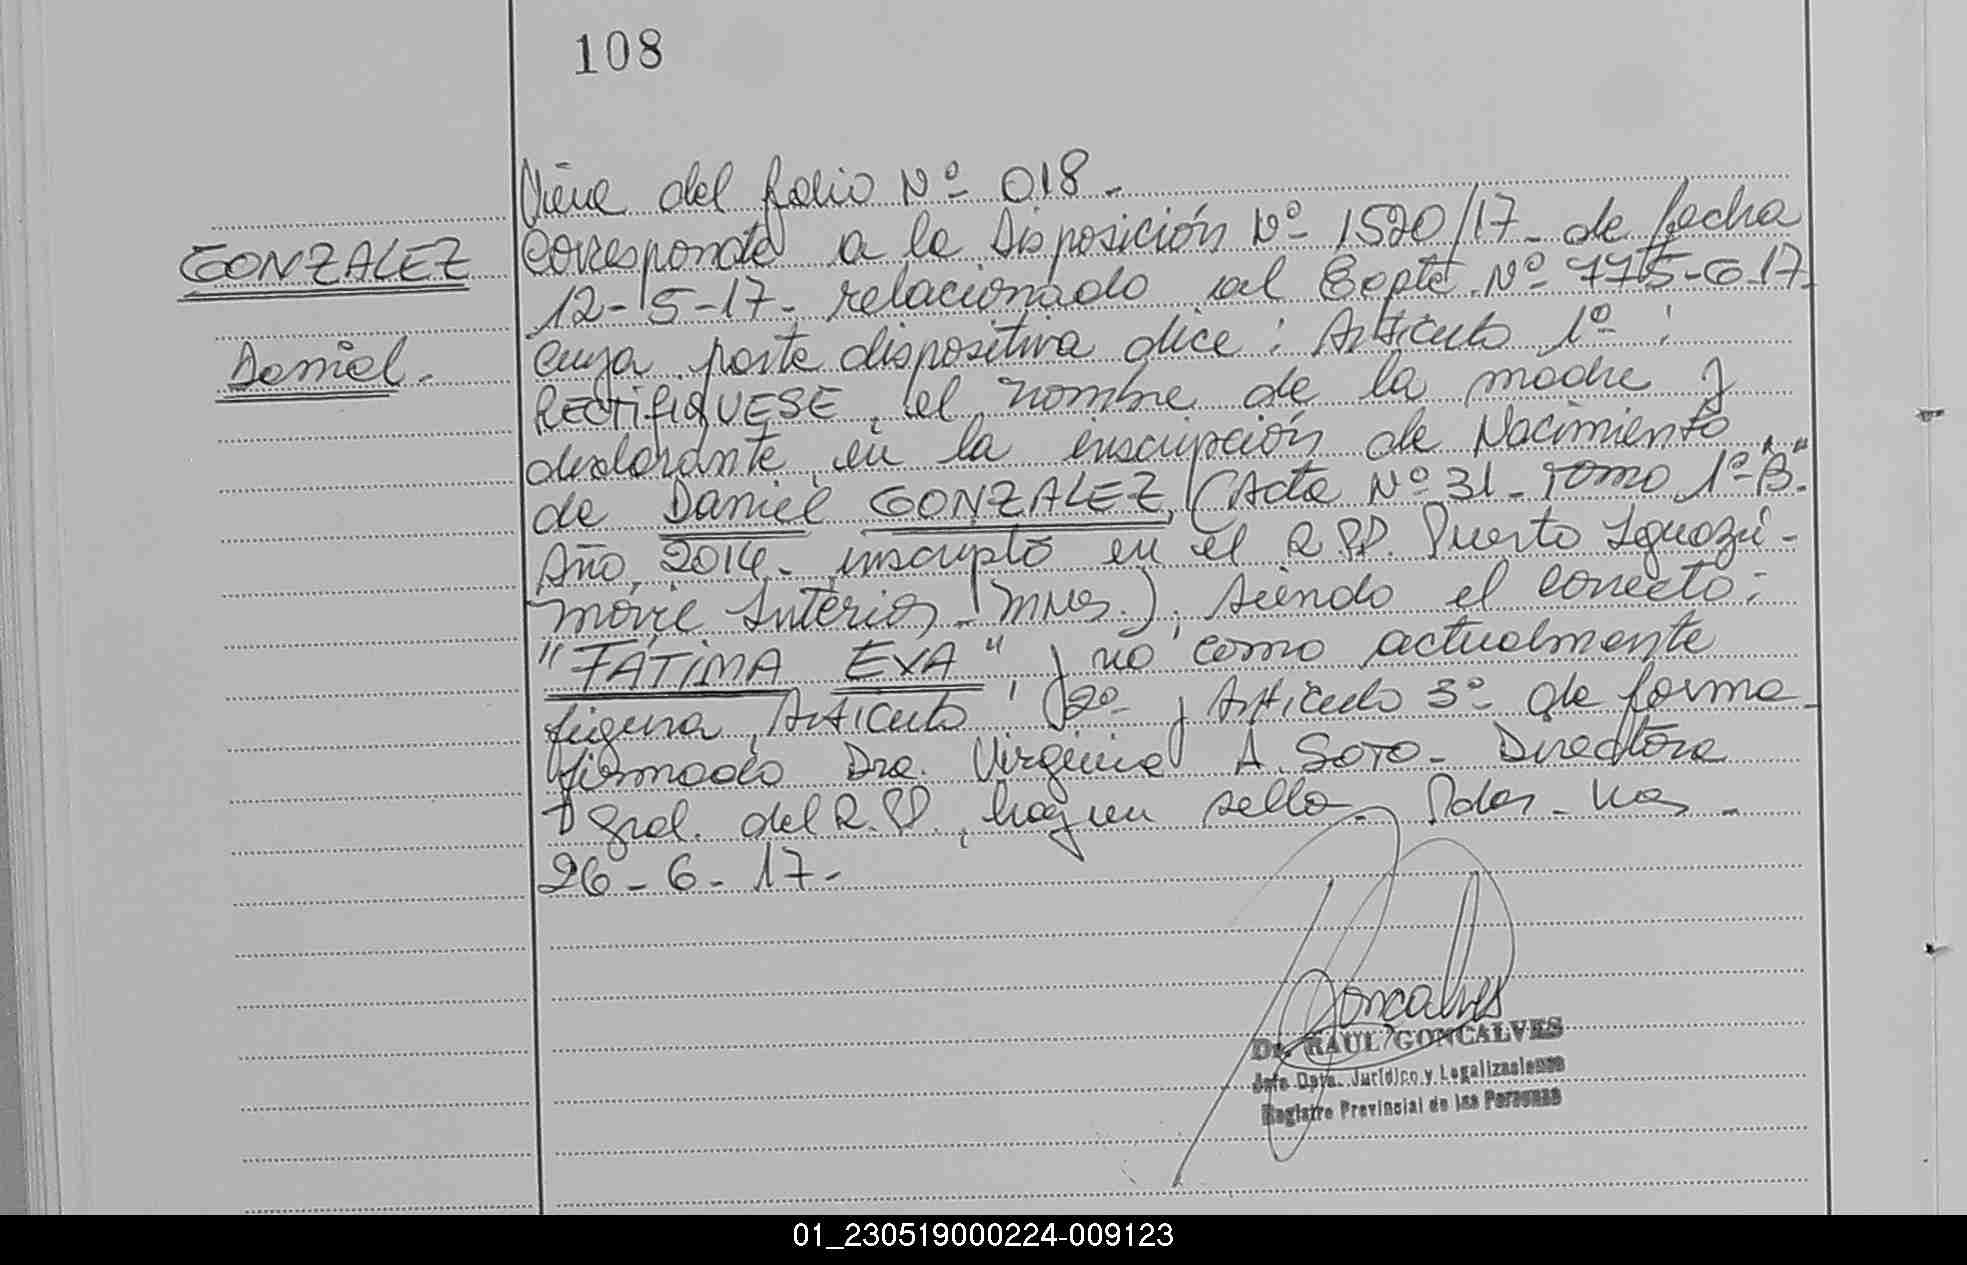 108
Viene del folio Nº 018.
GONZALEZ
Daniel.
Corresponde a la Disposición Nº 1520/17- de fecha
12-5-17- relacionado al Expte. Nº 775-G-17.
cuya parte dispositiva dice: Artículo 1º:
RECTIFIQUESE, el nombre de la madre y
declarante en la inscripción de Nacimiento
de Daniel GONZALEZ, (Acta Nº 31- Tomo 1º "B".
Año 2014- inscripto en el R.PP. Puerto Iguazú-
móvil Interior-(Mnes.), siendo el correcto:
"FÁTIMA EXA", y no como actualmente
figura, Artículo 2º y Artículo 3º de forma-
firmado Dra. Virginia A. SOTO- Directora
Gral. del R.PP., hay un sello- Pdas- Mes-
26-6-17-
Goncalves
Dr. RAUL GONCALVES
Jefe Dpto. Jurídico y Legalizaciones
Registro Provincial de las Personas
01_230519000224-009123